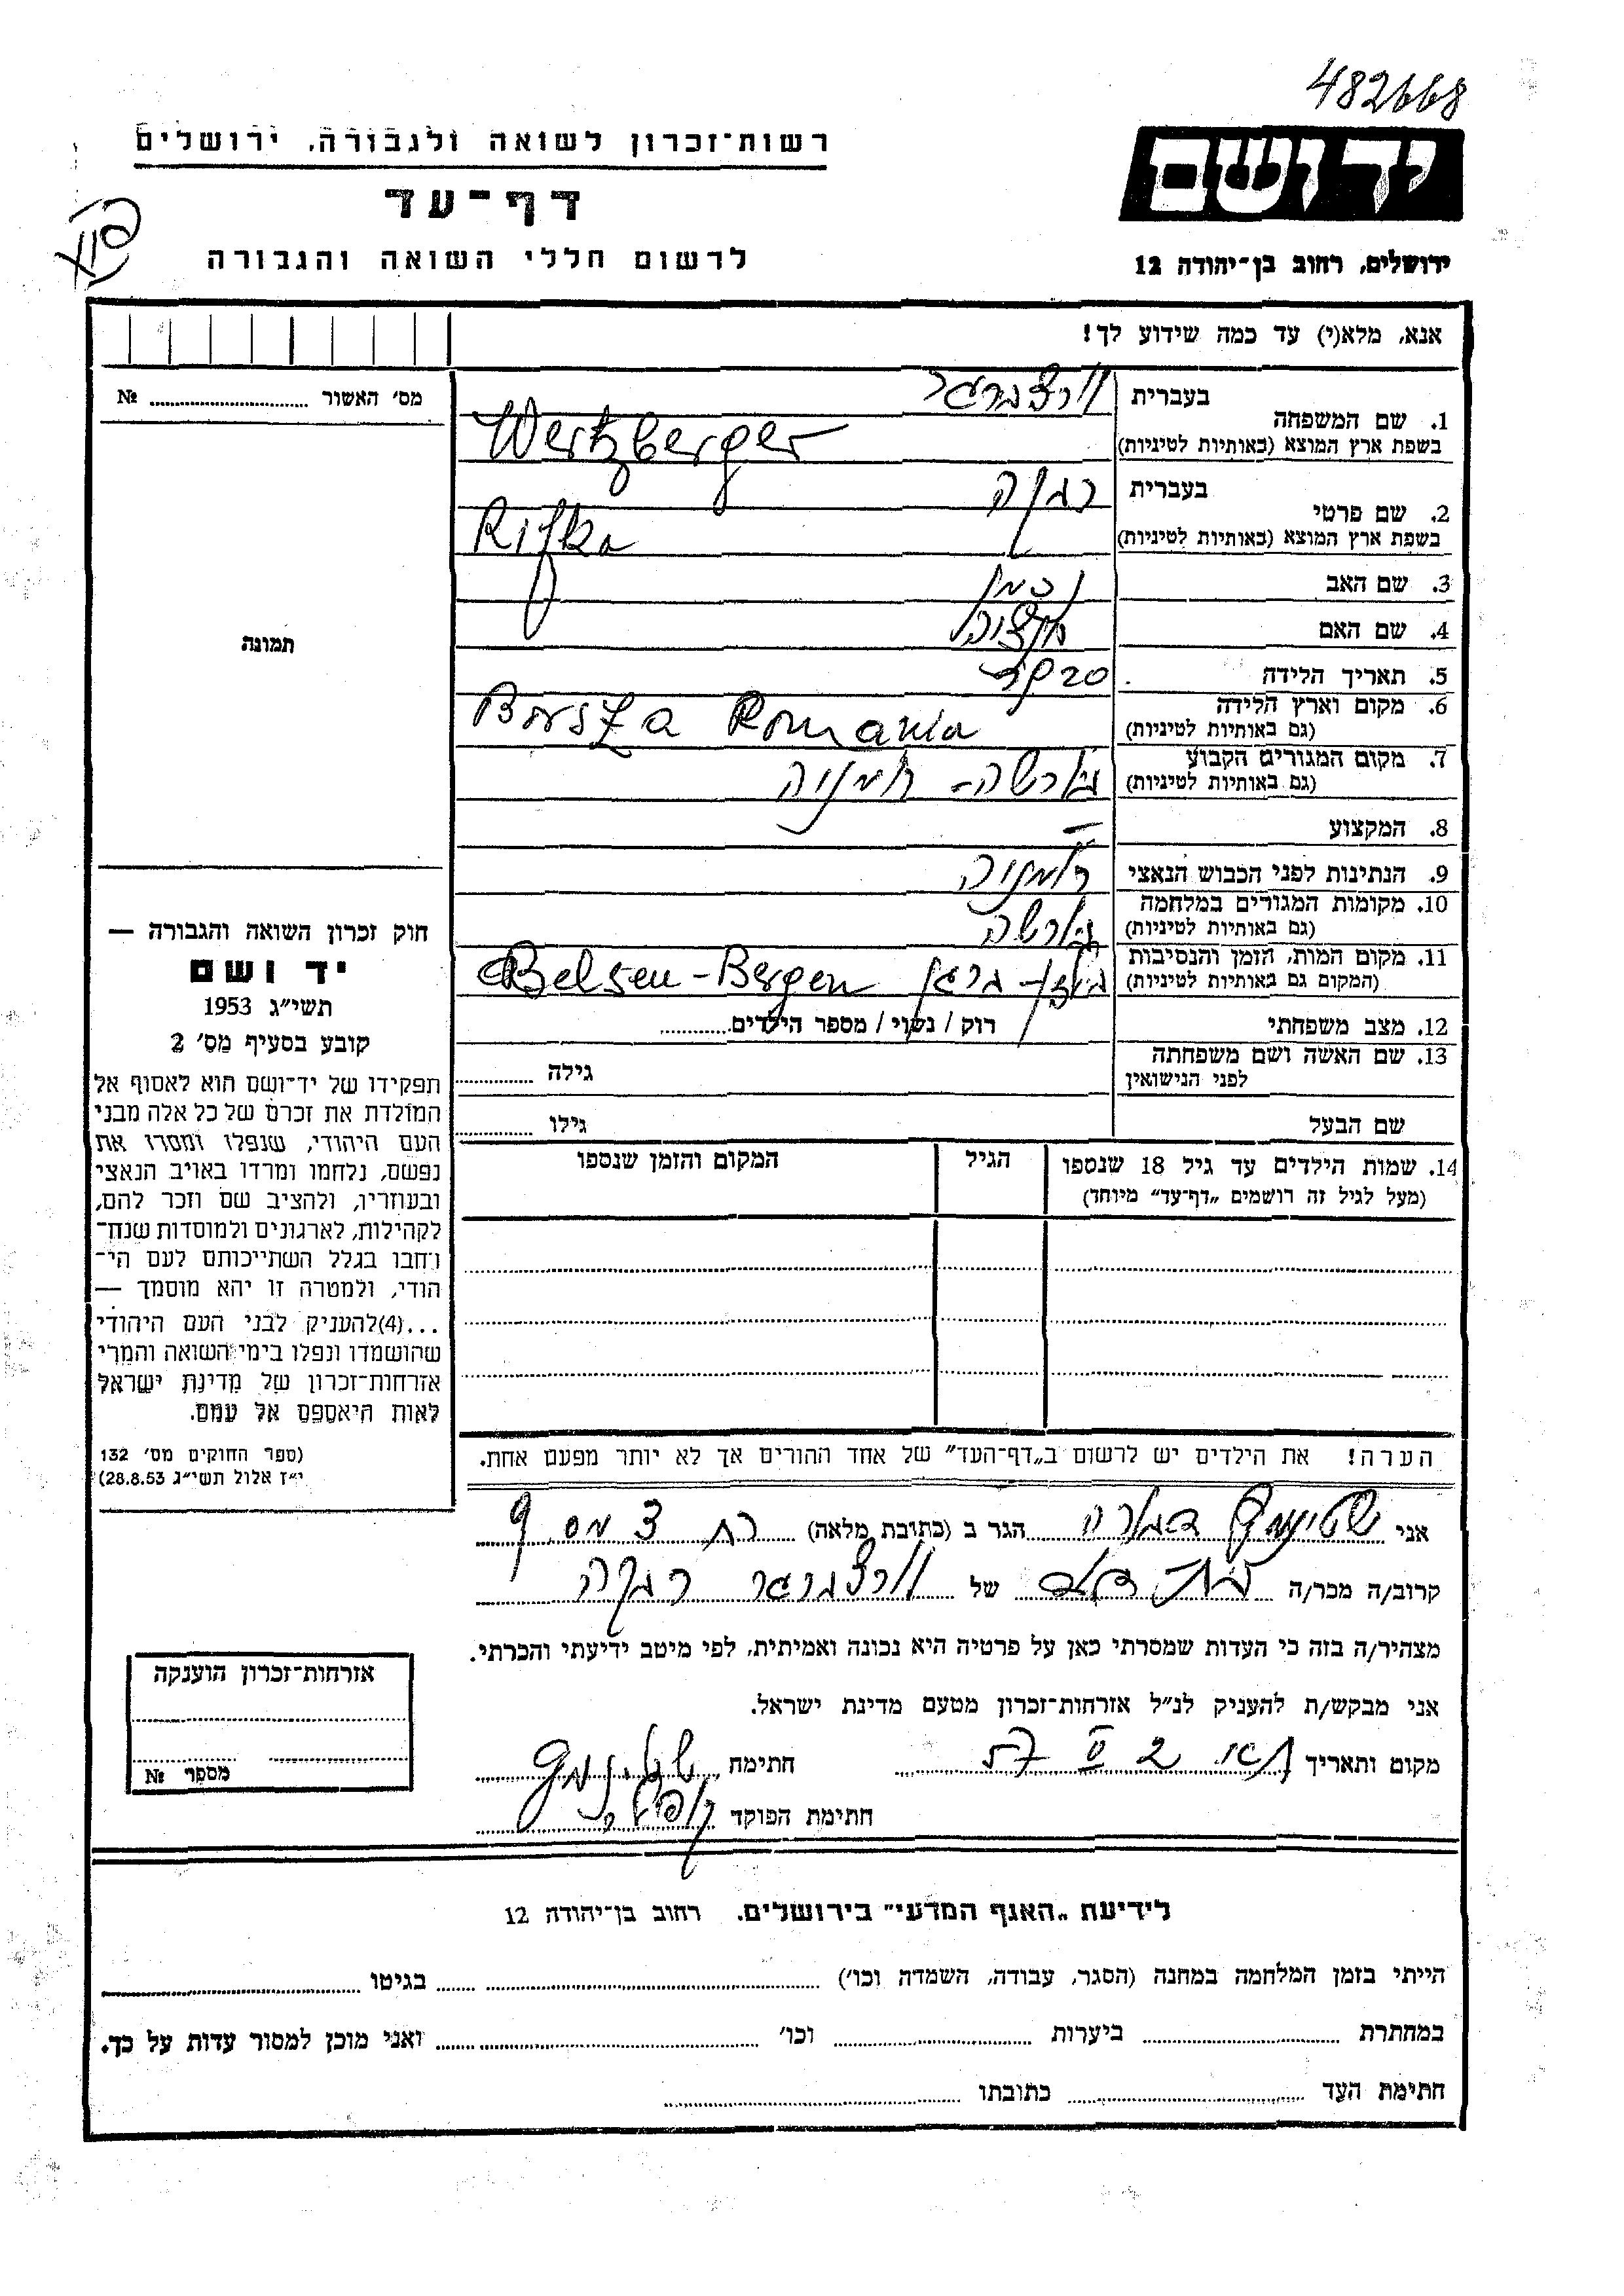 482668
ידושם
ירושלים, רחוב בן־יהודה 12
רשות־זכרון לשואה ולגבורה, ירושלים
דף־עד
לרשום חללי השואה והגבורה
אנא, מלא(י) עד כמה שידוע לך!
בעברית וורצברגר
1. שם המשפחה
בשפת ארץ המוצא (באותיות לטיניות) Wertzberger
בעברית רבקה
2. שם פרטי
בשפת ארץ המוצא (באותיות לטיניות) Rifka
3. שם האב נחמן
4. שם האם
5. תאריך הלידה
6. מקום וארץ הלידה Borsza Romania
(גם באותיות לטיניות)
7. מקום המגורים הקבוע בורשה - רומניה
(גם באותיות לטיניות)
8. המקצוע –
9. הנתינות לפני הכבוש הנאצי רומניה
10. מקומות המגורים במלחמה בורשה
(גם באותיות לטיניות)
11. מקום המות, הזמן והנסיבות בלזן - ברגן Belsen-Bergen
(המקום גם באותיות לטיניות)
12. מצב משפחתי רוק / נשוי / מספר הילדים
13. שם האשה ושם משפחתה גילה
לפני הנישואין
שם הבעל גילו
14. שמות הילדים עד גיל 18 שנספו הגיל המקום והזמן שנספו
(מעל לגיל זה רושמים „דף־עד” מיוחד)
הערה! את הילדים יש לרשום ב„דף־העד” של אחד ההורים אך לא יותר מפעם אחת.
מס׳ האשור №
תמונה
חוק זכרון השואה והגבורה —
יד ושם
תשי״ג 1953
קובע בסעיף מס׳ 2
תפקידו של יד־ושם הוא לאסוף אל
המולדת את זכרם של כל אלה מבני
העם היהודי, שנפלו ומסרו את
נפשם, נלחמו ומרדו באויב הנאצי
ובעוזריו, ולהציב שם וזכר להם,
לקהילות, לארגונים ולמוסדות שנח־
רחבו בגלל השתייכותם לעם הי־
הודי, ולמטרה זו יהא מוסמך —
...(4)להעניק לבני העם היהודי
שהושמדו ונפלו בימי השואה והמרי
אזרחות־זכרון של מדינת ישראל
לאות היאספם אל עמם.
(ספר החוקים מס׳ 132
י״ז אלול תשי״ג 28.8.53)
אני שטינמץ דבורה הגר ב (כתובת מלאה)
קרוב/ה מכר/ה בת דוד של וורצברגר רבקה
מצהיר/ה בזה כי העדות שמסרתי כאן על פרטיה היא נכונה ואמיתית, לפי מיטב ידיעתי והכרתי.
אני מבקש/ת להעניק לנ״ל אזרחות־זכרון מטעם מדינת ישראל.
מקום ותאריך חתימה שטינמץ
חתימת הפוקד
אזרחות־זכרון הוענקה
מספר №
לידיעת „האגף המדעי” בירושלים. רחוב בן־יהודה 12
הייתי בזמן המלחמה במחנה (הסגר, עבודה, השמדה וכו׳) בגיטו
במחתרת ביערות וכו׳ ואני מוכן למסור עדות על כך.
חתימת העד כתובתו